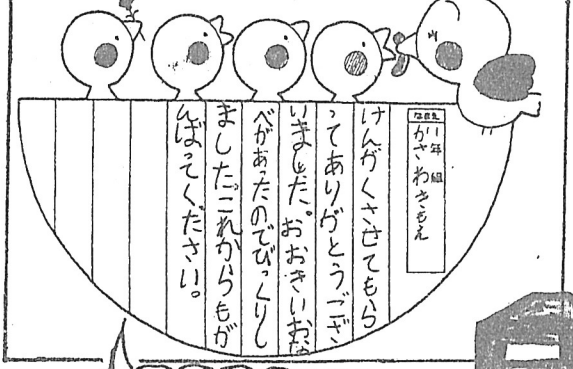 なまえ
1年 組
かさわきもえ
けんがくさせてもら
ってありがとうござ
いました。おおきいおな
べがあったのでびっくりし
ましたこれからもが
んばってください。